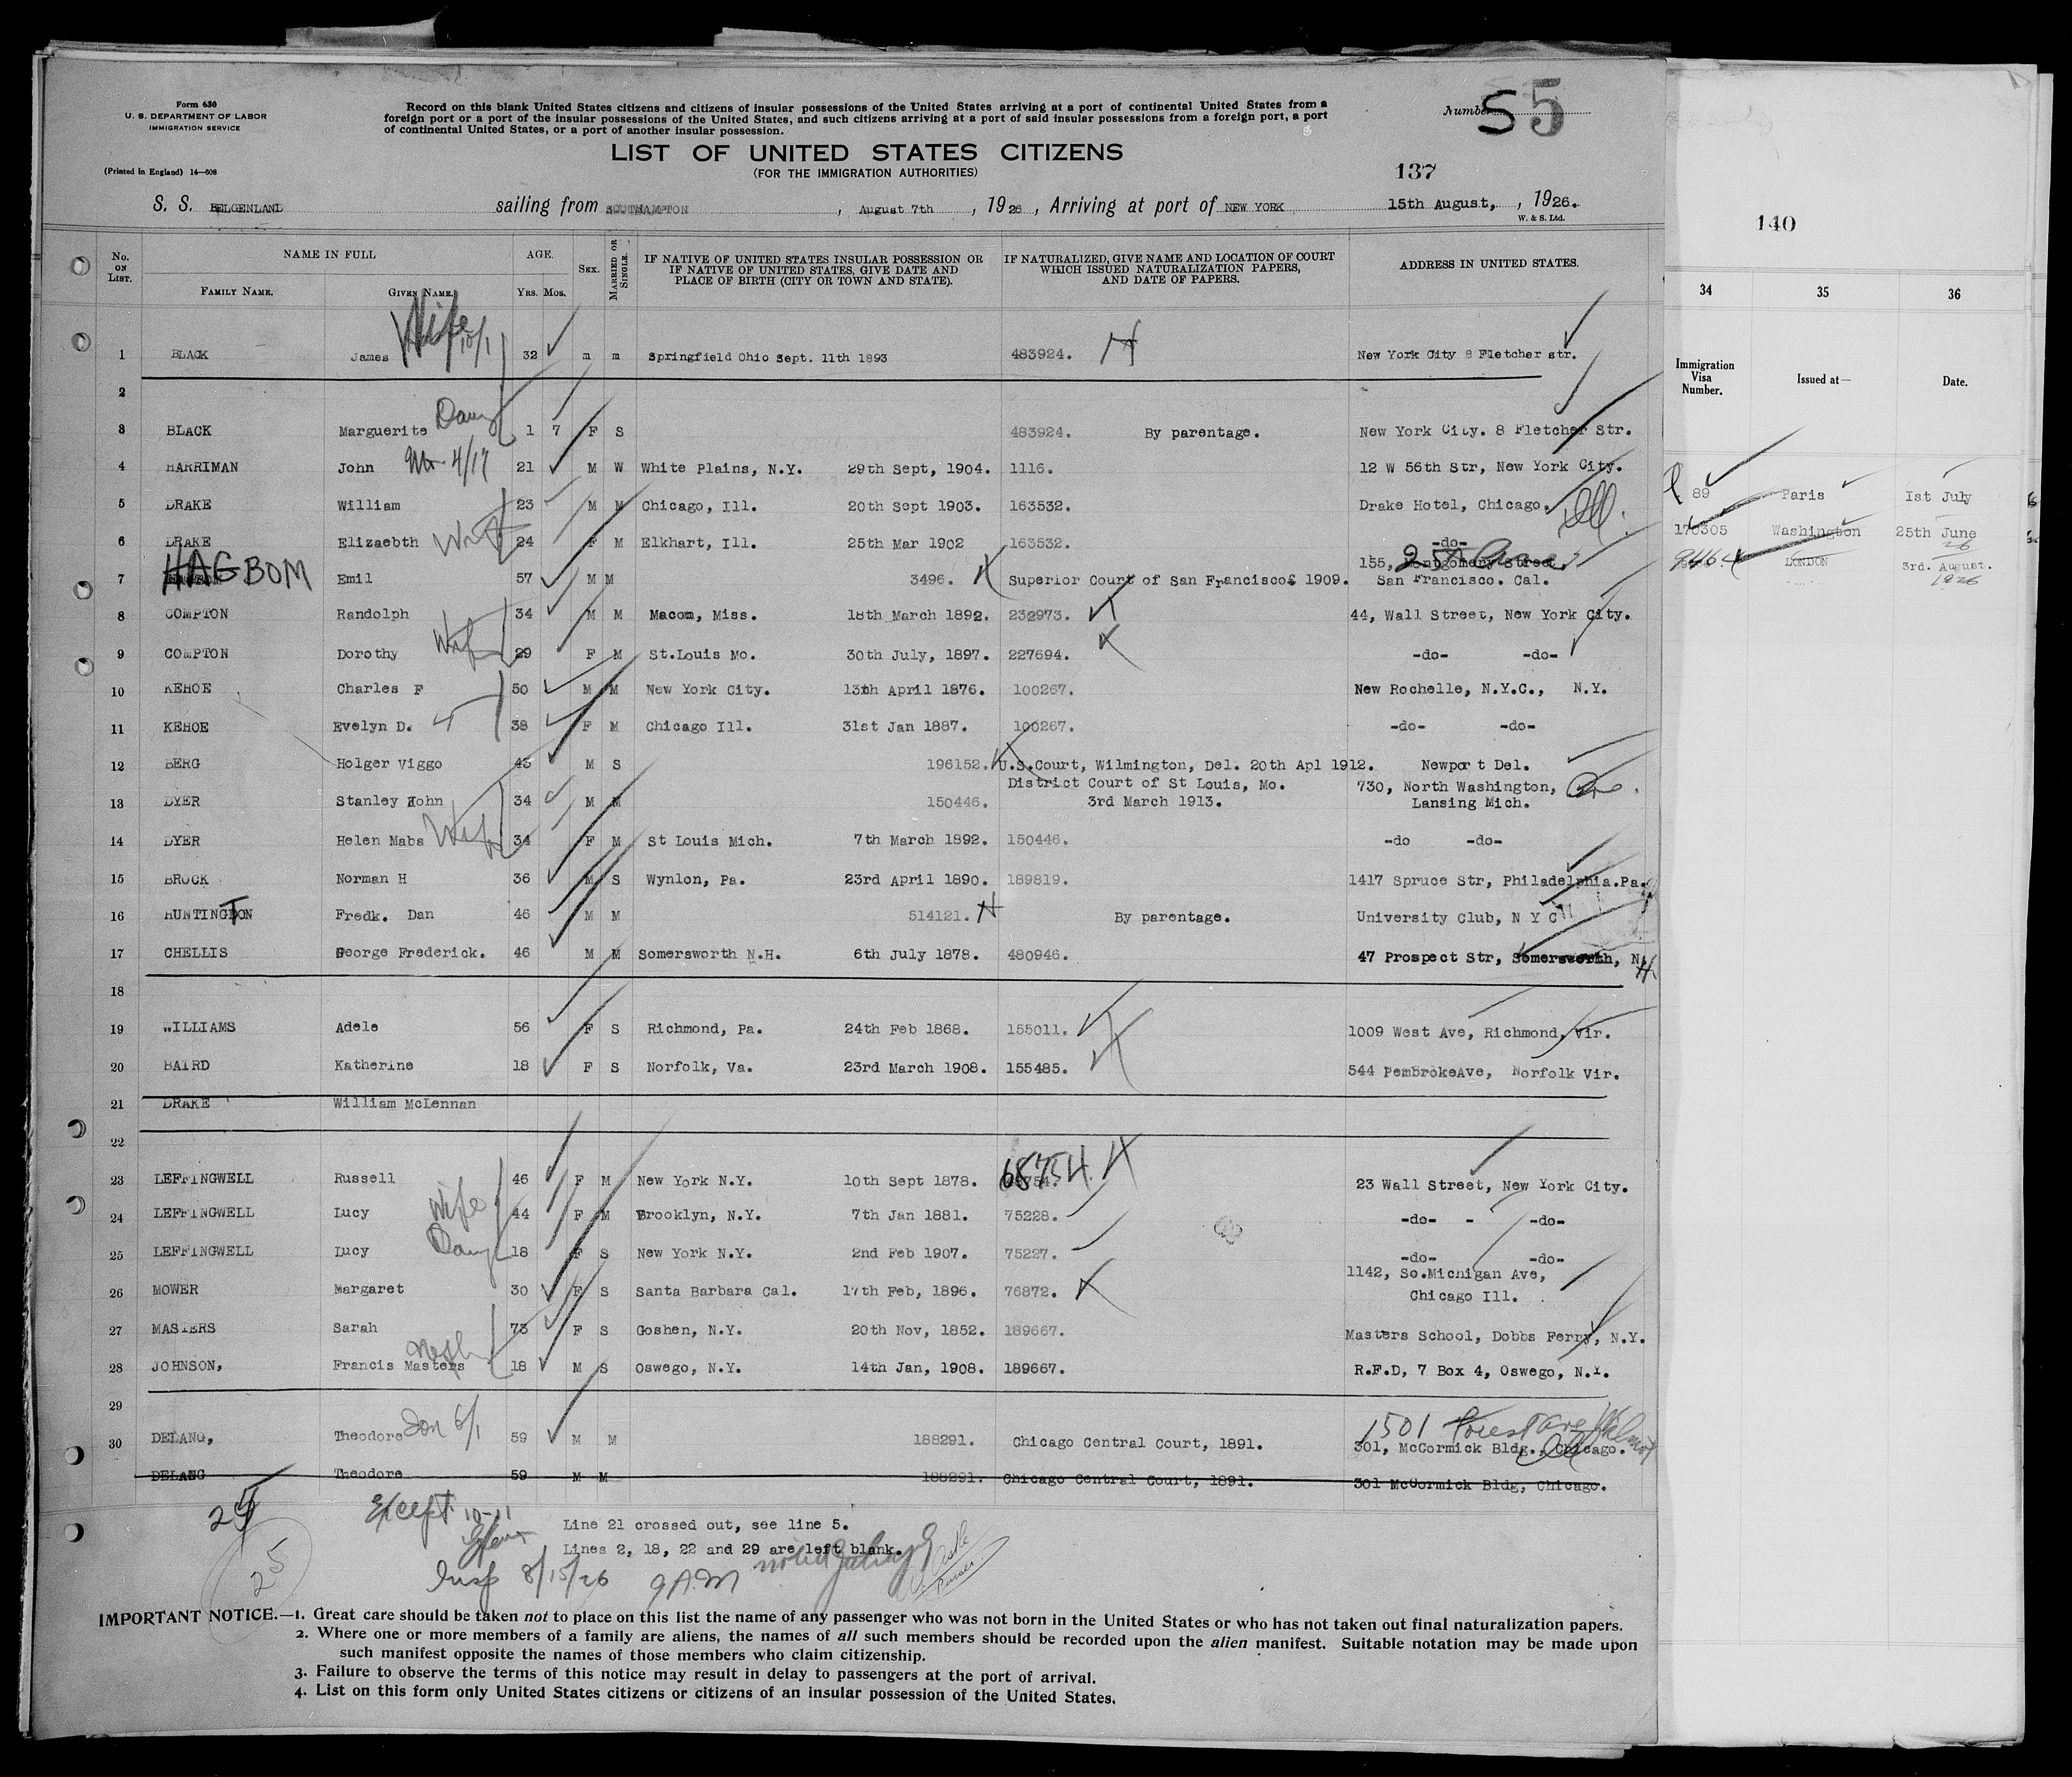 Form 630
U. S. DEPARTMENT OF LABOR
IMMIGRATION SERVICE
(Printed in England) 14—608
Record on this blank United States citizens and citizens of insular possessions of the United States arriving at a port of continental United States from a
foreign port or a port of the insular possessions of the United States, and such citizens arriving at a port of said insular possessions from a foreign port, a port
of continental United States, or a port of another insular possession.
Number 5 5
LIST OF UNITED STATES CITIZENS
(FOR THE IMMIGRATION AUTHORITIES)
137
S. S. BELGENLAND sailing from SOUTHAMPTON, August 7th, 1926, Arriving at port of NEW YORK 15th August, , 1926.
W. & S. Ltd.
No. ON LIST. NAME IN FULL AGE. SEX. MARRIED OR SINGLE. IF NATIVE OF UNITED STATES INSULAR POSSESSION OR IF NATIVE OF UNITED STATES, GIVE DATE AND PLACE OF BIRTH (CITY OR TOWN AND STATE). IF NATURALIZED, GIVE NAME AND LOCATION OF COURT WHICH ISSUED NATURALIZATION PAPERS, AND DATE OF PAPERS. ADDRESS IN UNITED STATES.
FAMILY NAME. GIVEN NAME. YRS. MOS.
Wife 10/1
1 BLACK James 32 m m Springfield Ohio Sept. 11th 1893 483924. New York City 8 Fletcher str.
2
3 BLACK Marguerite Daug 1 7 F S 483924. By parentage. New York City. 8 Fletcher Str.
4 HARRIMAN John 4/17 21 M W White Plains, N.Y. 29th Sept, 1904. 1116. 12 W 56th Str, New York City.
5 DRAKE William 23 M M Chicago, Ill. 20th Sept 1903. 163532. Drake Hotel, Chicago. Ill.
6 DRAKE Elizaebth Wife 24 F M Elkhart, Ill. 25th Mar 1902 163532. -do-
155, Montgomery Street,
7 HAGBOM Emil 57 M M 3496. Superior Court of San Francisco 1909. San Francisco. Cal.
8 COMPTON Randolph 34 M M Macom, Miss. 18th March 1892. 232973. 44, Wall Street, New York City.
9 COMPTON Dorothy Wife 29 F M St.Louis Mo. 30th July, 1897. 227694. -do- -do-
10 KEHOE Charles F 50 M M New York City. 13th April 1876. 100267. New Rochelle, N.Y.C., N.Y.
11 KEHOE Evelyn D. 38 F M Chicago Ill. 31st Jan 1887. 100267. -do- -do-
12 BERG Holger Viggo 43 M S 196152. U.S.Court, Wilmington, Del. 20th Apl 1912. Newport Del.
District Court of St Louis, Mo. 730, North Washington,
13 DYER Stanley John 34 M M 150446. 3rd March 1913. Lansing Mich.
14 DYER Helen Mabs Wife 34 F M St Louis Mich. 7th March 1892. 150446. -do -do-
15 BROCK Norman H 36 M S Wynlon, Pa. 23rd April 1890. 189819. 1417 Spruce Str, Philadelphia.Pa.
16 HUNTINGTON Fredk. Dan 46 M M 514121. By parentage. University Club, N Y C
17 CHELLIS George Frederick. 46 M M Somersworth N.H. 6th July 1878. 480946. 47 Prospect Str, Somersworth, N.H.
18
19 WILLIAMS Adele 56 F S Richmond, Pa. 24th Feb 1868. 155011. 1009 West Ave, Richmond, Vir.
20 BAIRD Katherine 18 F S Norfolk, Va. 23rd March 1908. 155485. 544 PembrokeAve, Norfolk Vir.
21 DRAKE William McLennan
22
23 LEFFINGWELL Russell 46 F M New York N.Y. 10th Sept 1878. 68754. 23 Wall Street, New York City.
24 LEFFINGWELL Lucy Wife 44 F M Brooklyn, N.Y. 7th Jan 1881. 75228. -do- - -do-
25 LEFFINGWELL Lucy Daug 18 F S New York N.Y. 2nd Feb 1907. 75227. -do- -do-
1142, So.Michigan Ave,
26 MOWER Margaret 30 F S Santa Barbara Cal. 17th Feb, 1896. 76872. Chicago Ill.
27 MASTERS Sarah 73 F S Goshen, N.Y. 20th Nov, 1852. 189667. Masters School, Dobbs Ferry, N.Y.
28 JOHNSON, Francis Masters Neph 18 M S Oswego, N.Y. 14th Jan, 1908. 189667. R.F.D, 7 Box 4, Oswego, N.Y.
29
1501 Forest Ave Wilmot
30 DELANG, Theodore Son 6/1 59 M M 188291. Chicago Central Court, 1891. 301, McCormick Bldg., Chicago.
DELANG Theodore 59 M M 188291. Chicago Central Court, 1891. 301 McCormick Bldg, Chicago.
25 Except 10-11
Line 21 crossed out, see line 5.
Lines 2, 18, 22 and 29 are left blank.
25
Insp 8/15/26 9 A.M
Purser
IMPORTANT NOTICE.—1. Great care should be taken not to place on this list the name of any passenger who was not born in the United States or who has not taken out final naturalization papers.
2. Where one or more members of a family are aliens, the names of all such members should be recorded upon the alien manifest. Suitable notation may be made upon
such manifest opposite the names of those members who claim citizenship.
3. Failure to observe the terms of this notice may result in delay to passengers at the port of arrival.
4. List on this form only United States citizens or citizens of an insular possession of the United States.
140
34 35 36
Immigration Visa Number. Issued at— Date.
89 Paris 1st July
170305 Washington 25th June 26
946 LONDON 3rd. August. 1926